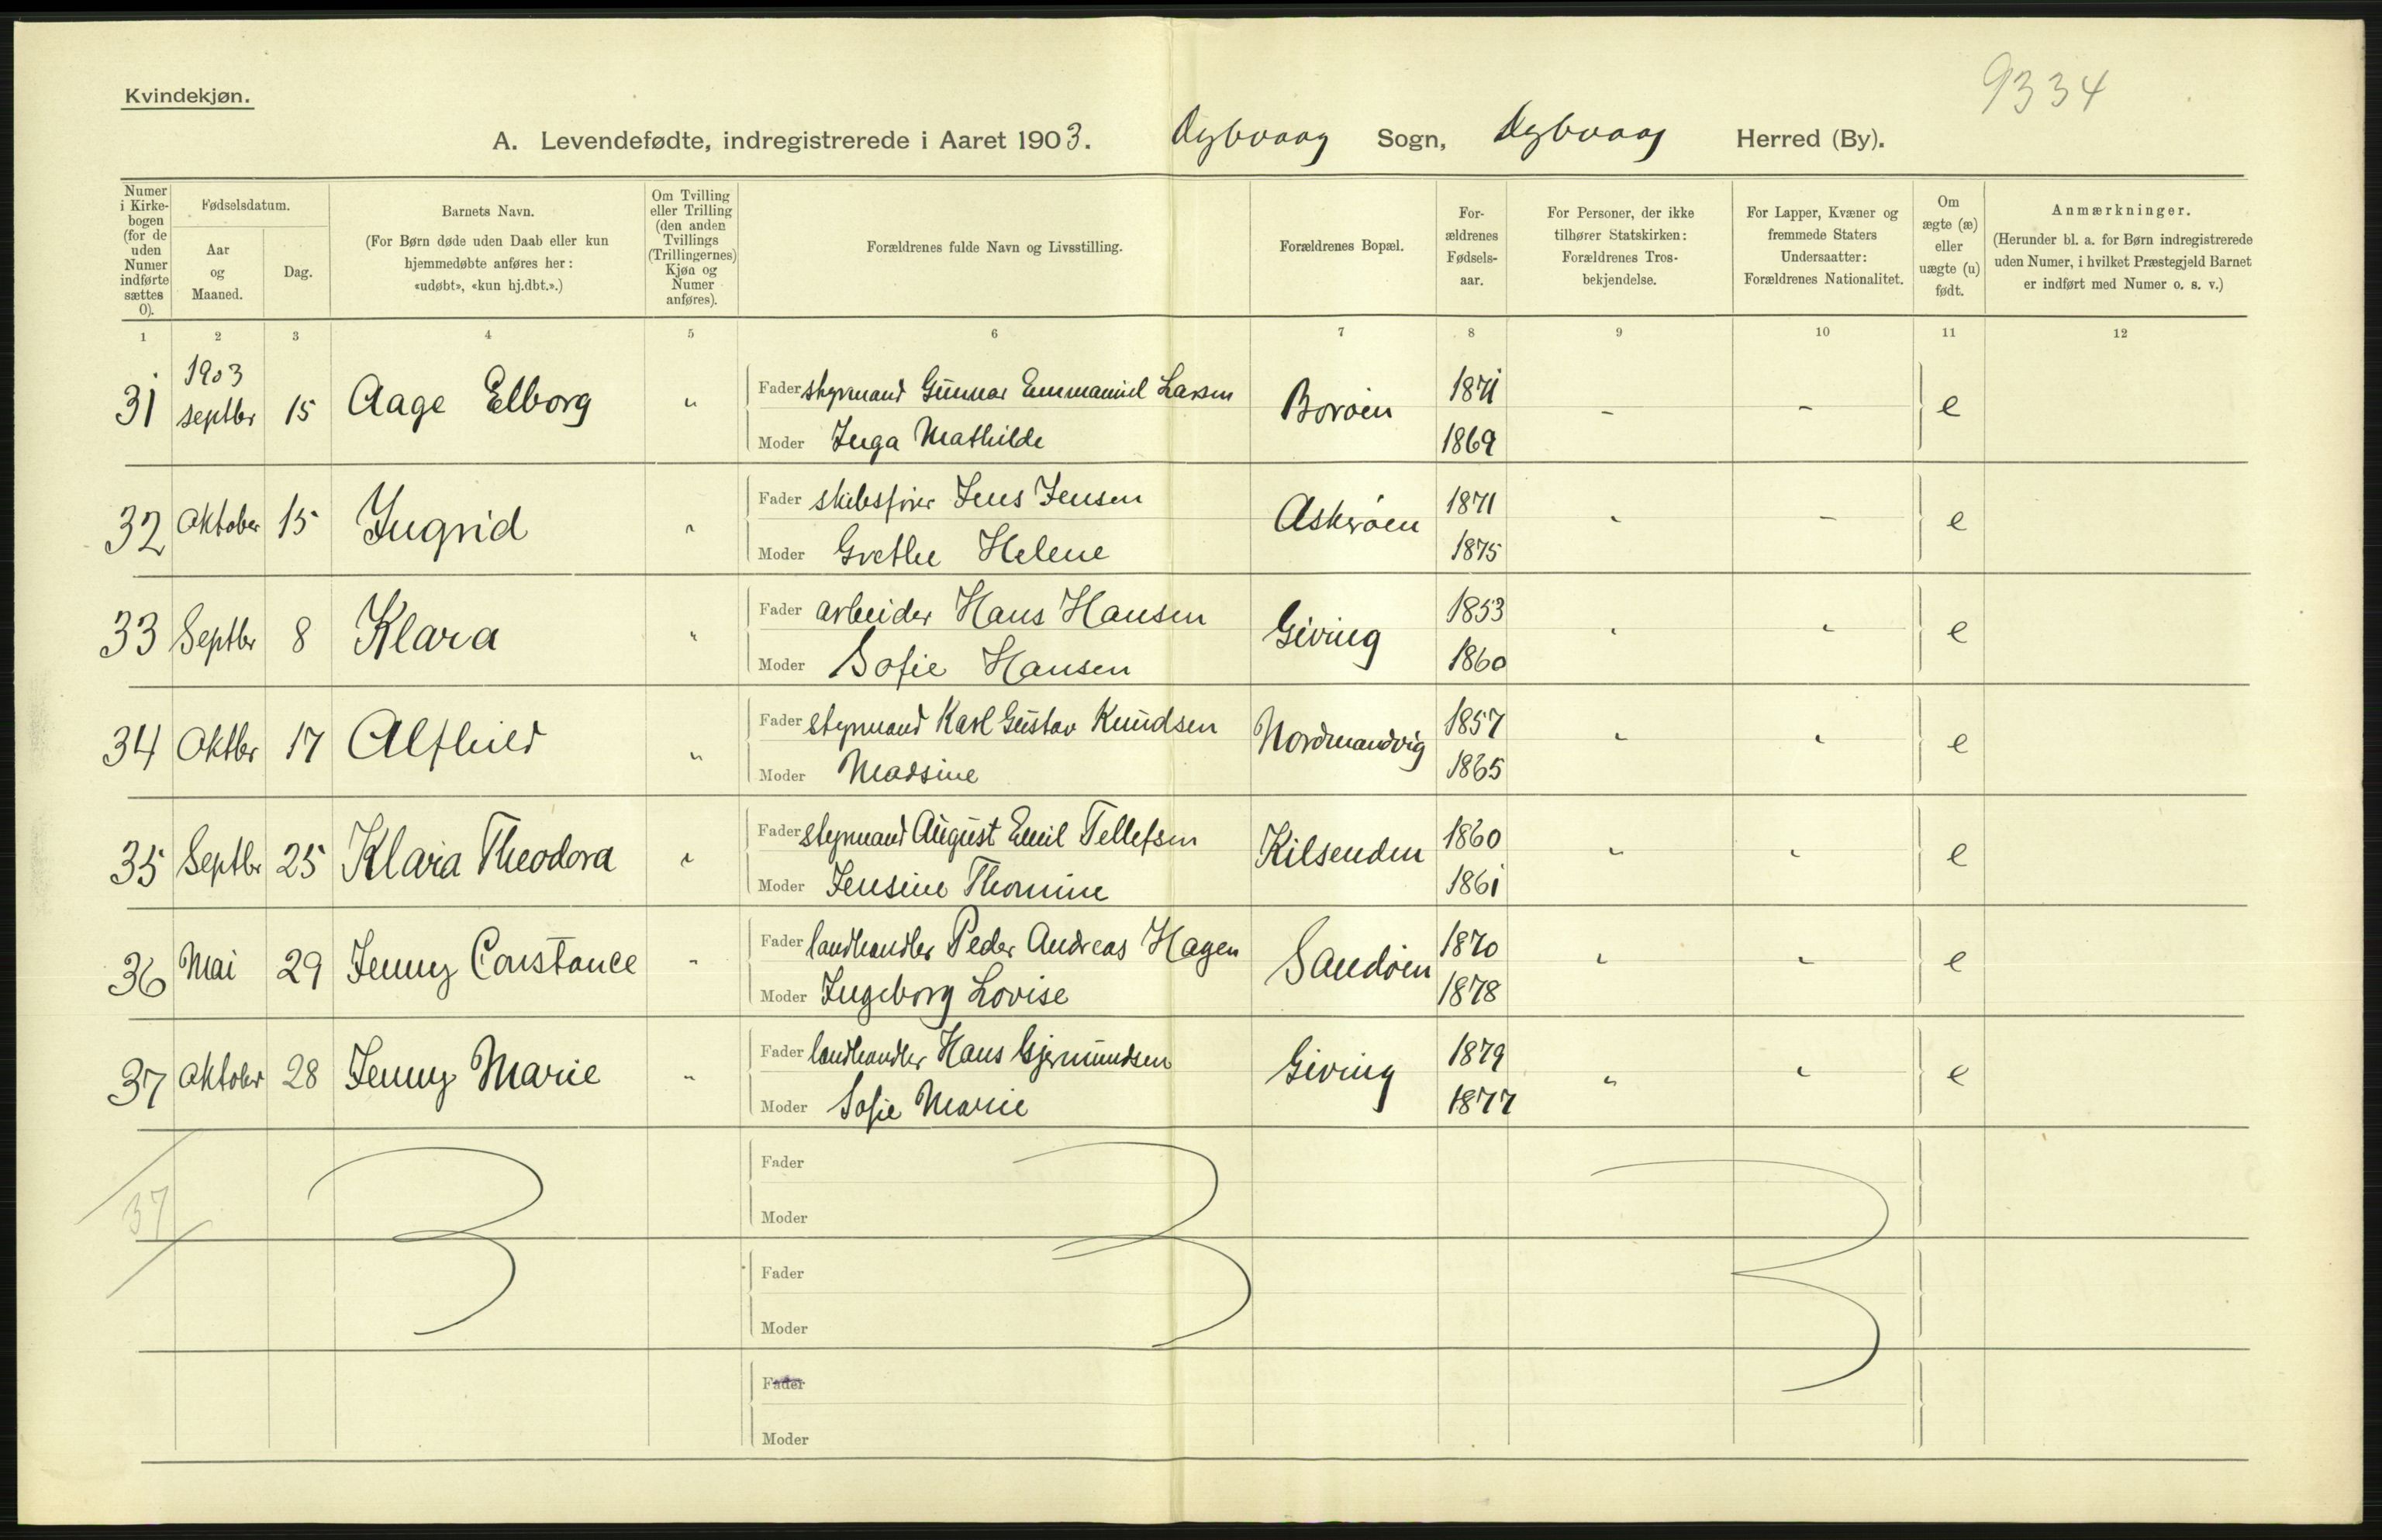 9334
Kvindekjøn.
A. Levendefødte, indregistrerede i Aaret 1903. Dybvaag Sogn, Dybvaag Herred (By).
Numer i Kirke-bogen (for de uden Numer indførte sættes 0).
Fødselsdatum.
Aar og Maaned.
Dag.
Barnets Navn.
(For Børn døde uden Daab eller kun hjemmedøbte anføres her: «udøbt», «kun hj.dbt.».)
Om Tvilling eller Trilling (den anden Tvillings (Trillingernes) Kjøn og Numer anføres).
Forældrenes fulde Navn og Livsstilling.
Forældrenes Bopæl.
For-ældrenes Fødsels-aar.
For Personer, der ikke tilhører Statskirken: Forældrenes Tros-bekjendelse.
For Lapper, Kvæner og fremmede Staters Undersaatter: Forældrenes Nationalitet.
Om ægte (æ) eller uægte (u) født.
Anmærkninger.
(Herunder bl. a. for Børn indregistrerede uden Numer, i hvilket Præstegjeld Barnet er indført med Numer o. s. v.)
1 2 3 4 5 6 7 8 9 10 11 12
1903
31 septbr 15 Aage Elborg " Fader styrmand Gunnar Emmanuel Larsen Borøen 1871 - - e
Moder Inga Mathilde 1869
32 Oktober 15 Ingrid " Fader skibsfører Jens Jensen Askerøen 1871 " - e
Moder Grethe Helene 1875
33 Septbr 8 Klara " Fader arbeider Hans Hansen Giving 1853 " " e
Moder Sofie Hansen 1860
34 Oktbr 17 Alfhild " Fader styrmand Karl Gustav Knudsen Nordmandvig 1857 " " e
Moder Madsine 1865
35 Septbr 25 Klara Theodora " Fader styrmand August Emil Tellefsen Kilsenden 1860 " " e
Moder Jensine Thomine 1861
36 Mai 29 Jenny Constance " Fader landhandler Peder Andreas Hagen Sandøen 1870 " " e
Moder Ingeborg Lovise 1878
37 Oktober 28 Jenny Marie " Fader landhandler Hans Gjermundsen Giving 1879 " " e
Moder Sofie Marie 1877
Fader
37
Moder
Fader
Moder
Fader
Moder